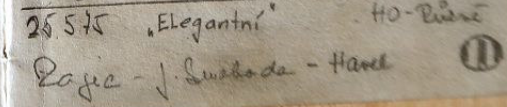 25.5.75 „Elegantní" HO-Různé
Zajíc - J. Svoboda - Havel II